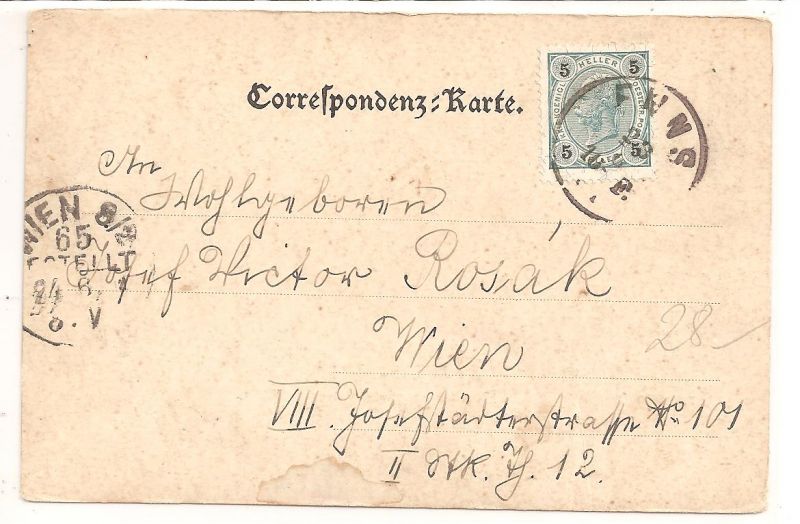 Correspondenz-Karte.
5 HELLER 5
5 5
ENNS
An
Wohlgeboren
Josef Victor Rosák
Wien
VIII. Josefstädterstrasse No 101
II Stk. Th. 12.
WIEN 8/2
65
BESTELLT
28-